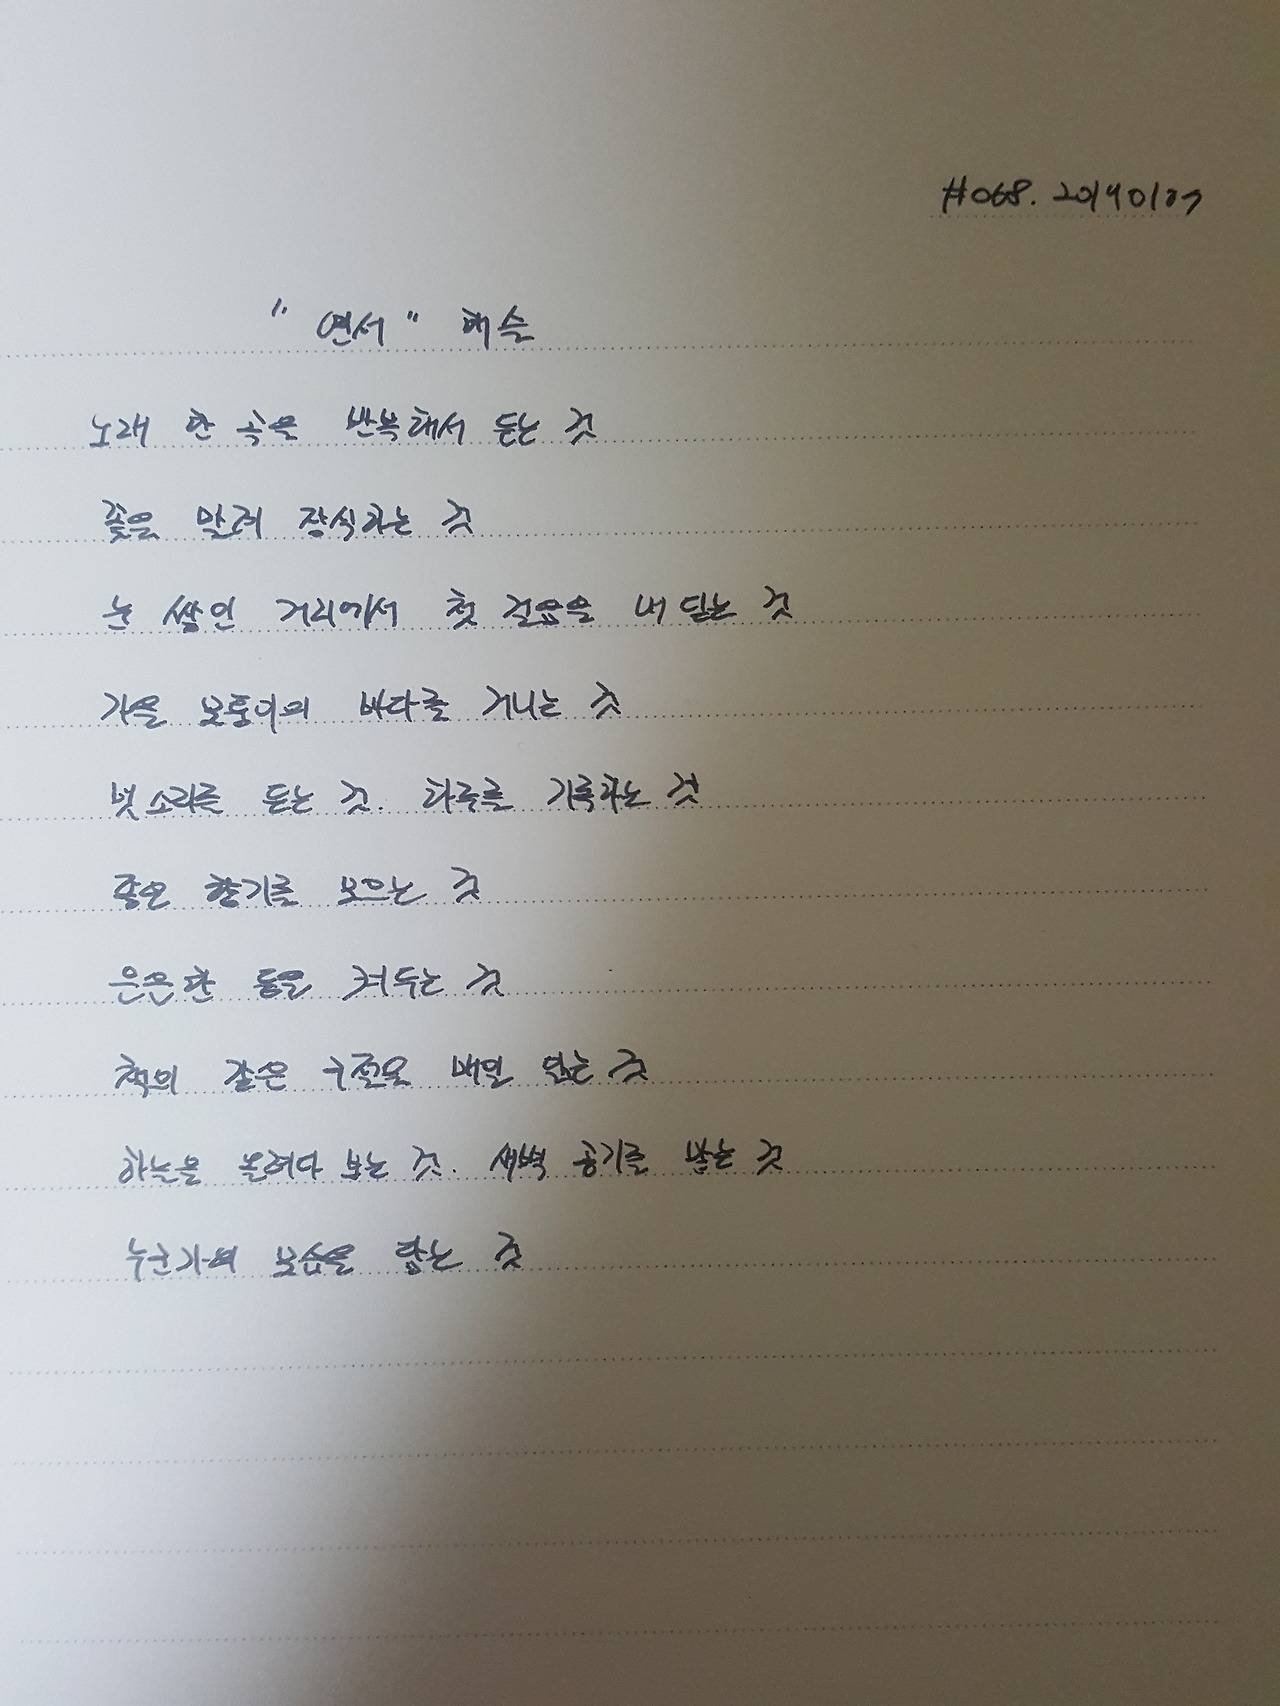 #068. 20190107
"연서" 해슬
노래 한 곡을 반복해서 듣는 것
꽃을 말려 장식하는 것
눈 쌓인 거리에서 첫 걸음을 내딛는 것
가을 모퉁이의 바다를 거니는 것
빗소리를 듣는 것. 하루를 기록하는 것
좋은 향기를 모으는 것
은은한 등을 켜두는 것
책의 같은 구절을 매일 읽는 것
하늘을 올려다 보는 것. 새벽 공기를 맡는 것
누군가의 모습을 담는 것